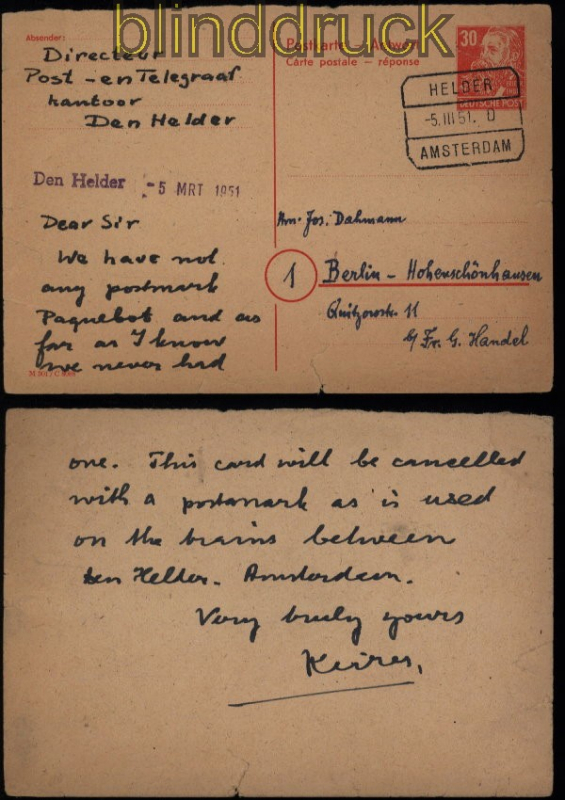 blinddruck
Absender:
Directeur
Post - en Telegraaf
kantoor
Den Helder
Postkarte - Antwort
Carte postale — réponse
30
DEUTSCHE POST
HELDER
-5.III.51. D
AMSTERDAM
Den Helder -5 MRT 1951
Dear Sir
We have not
any postmark
Paquebot and as
far as I know
we never had
An Jos. Dahmann
1 Berlin - Hohenschönhausen
Quitzowstr. 11
b/ Fr. G. Handel
one. This card will be cancelled
with a postmark as is used
on the trains between
den Helder - Amsterdam.
Very truly yours